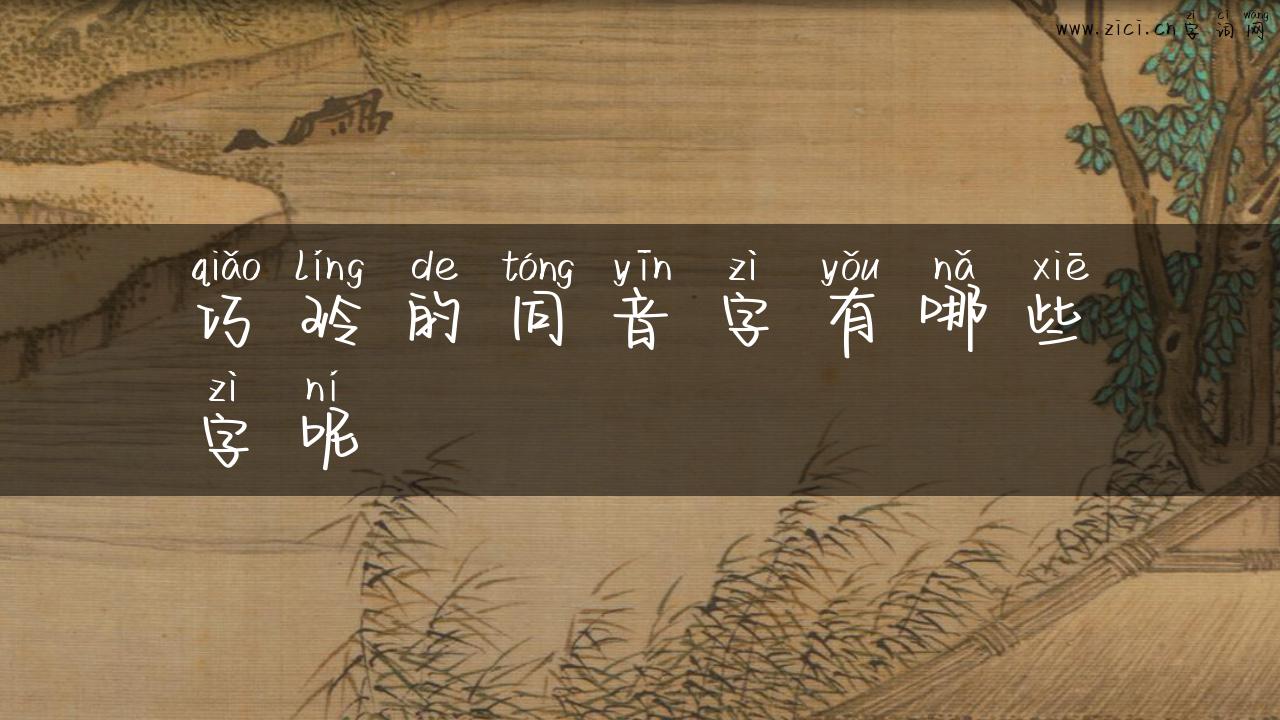 zì cí wǎng
www.zici.cn 字 词 网
qiǎo líng de tóng yīn zì yǒu nǎ xiē
巧 玲 的 同 音 字 有 哪 些
zì ní
字 呢